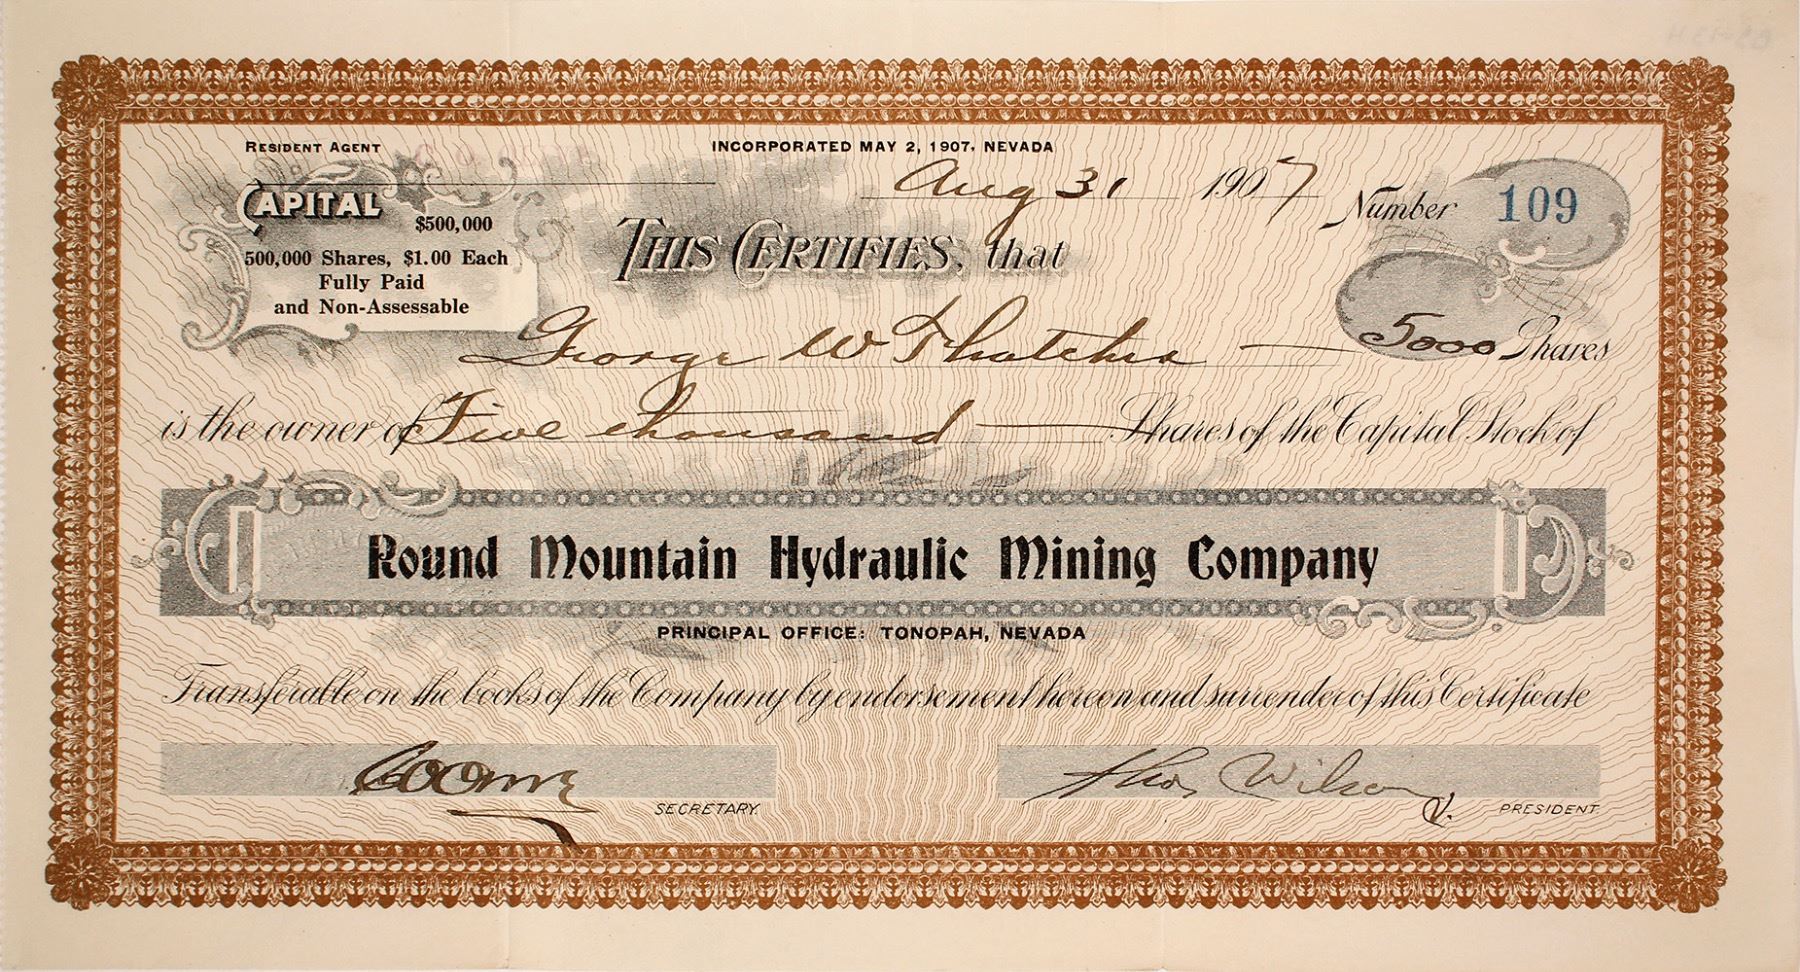 RESIDENT AGENT
INCORPORATED MAY 2, 1907. NEVADA
Aug 31 1907
Number 109
CAPITAL
$500,000
500,000 Shares, $1.00 Each
Fully Paid
and Non-Assessable
THIS CERTIFIES, that
George W Thatcher 5000 Shares
is the owner of Five thousand Shares of the Capital Stock of
Round Mountain Hydraulic Mining Company
PRINCIPAL OFFICE: TONOPAH, NEVADA
Transferable on the books of the Company by endorsement hereon and surrender of this Certificate
SECRETARY.
Thos Wilson
V. PRESIDENT.